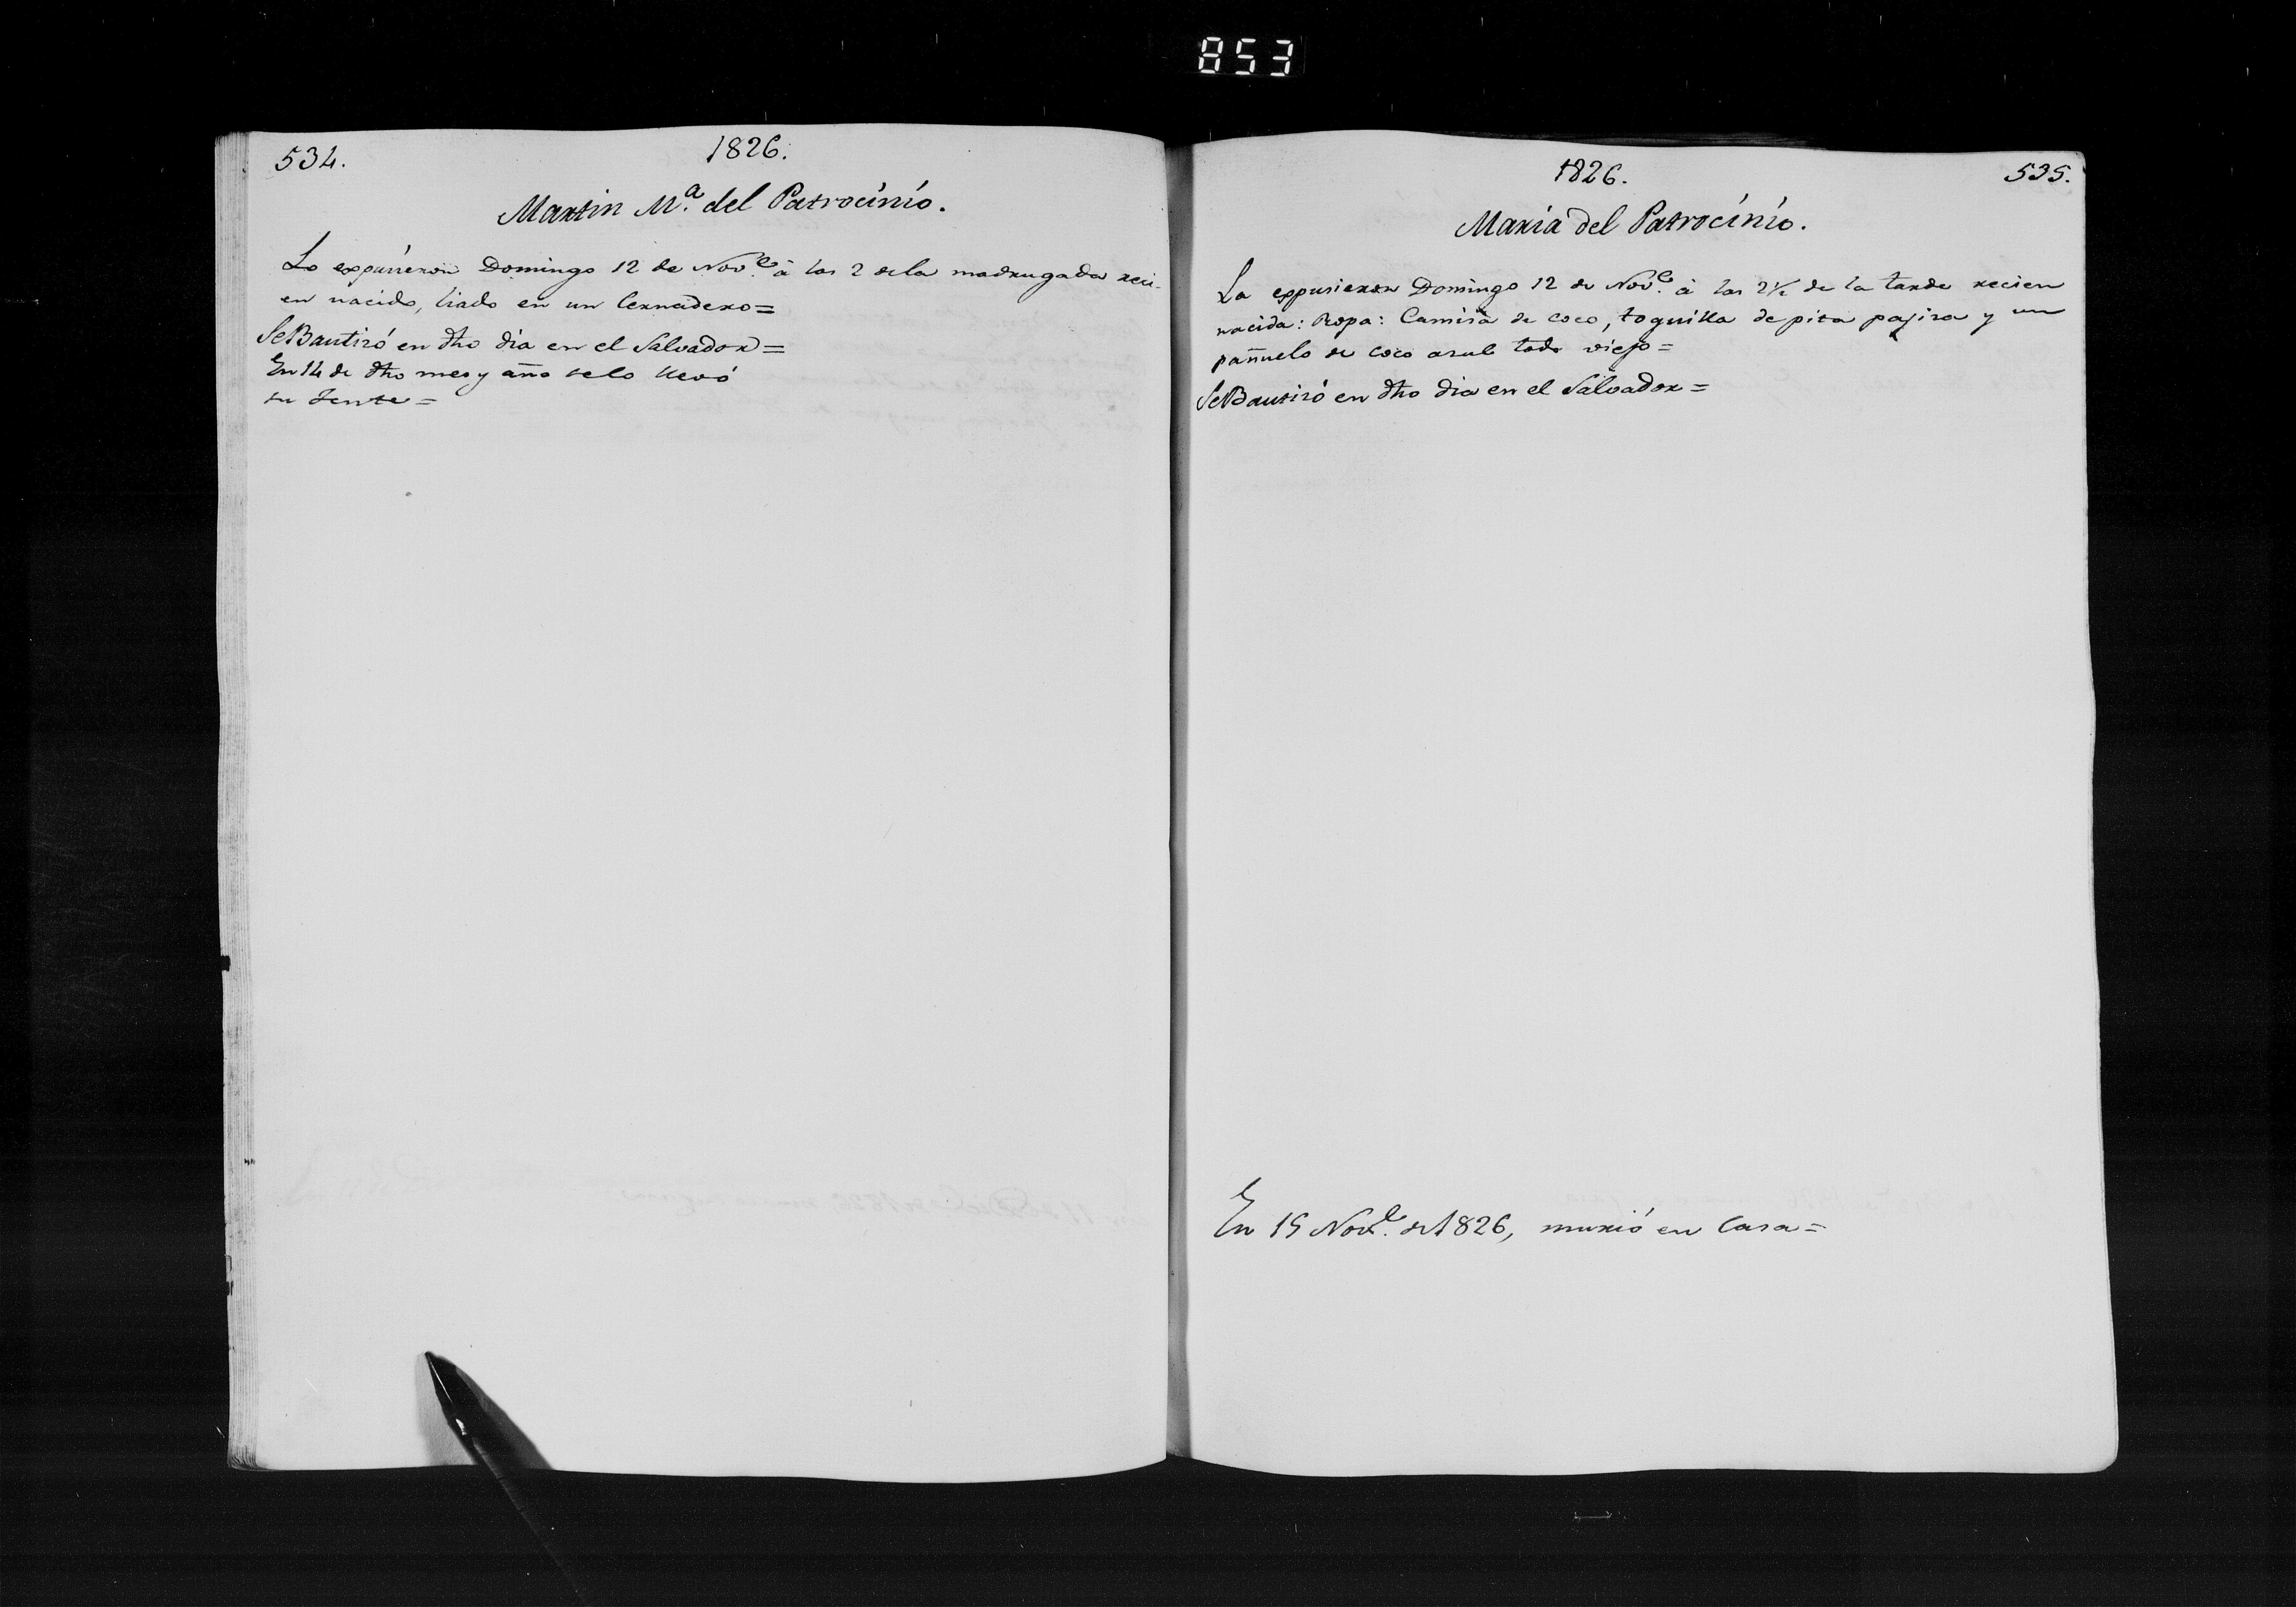 853
534.
1826.
Martin M.ª del Patrocinio.
Lo expusieron Domingo 12 de Nov.e à las 2 de la madrugada reci-
en nacido, liado en un Cernadero=
Se Bautizó en dho dia en el Salvador=
En 14 de dho mes y año se lo llevó
su Jente=
1826.
535.
Maria del Patrocinio.
La expusieron Domingo 12 de Nov.e à las 2½ de la tarde recien
nacida: Ropa: Camisa de coco, toquilla de pita pajiza y un
pañuelo de coco asul todo viejo=
Se Bautizó en dho dia en el Salvador=
En 15 Nov.e de 1826, murió en Casa=